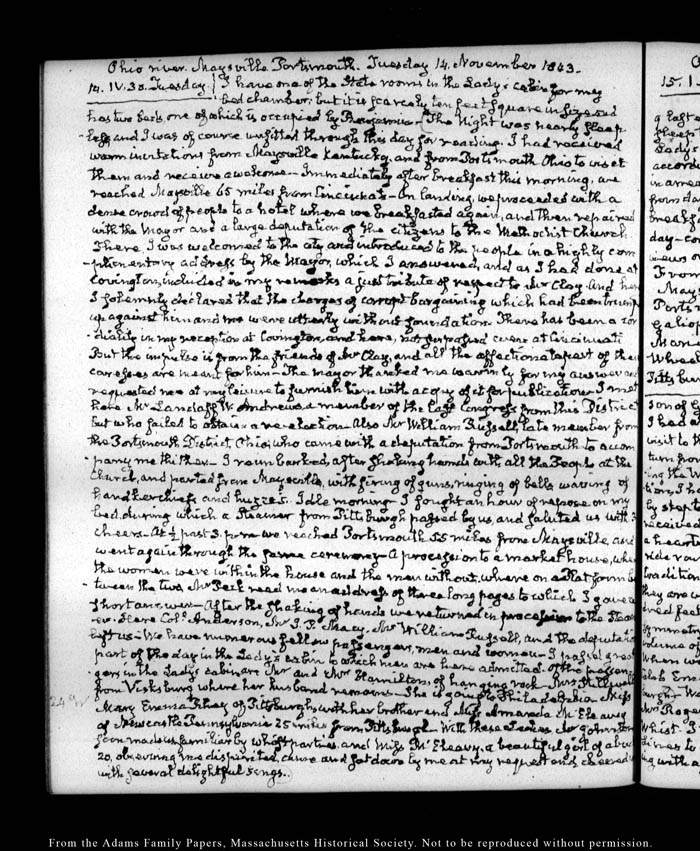 Ohio river. Maysville. Portsmouth. Tuesday 14. November 1843.
14. IV:30. Tuesday. I have one of the State rooms in the Lady's cabin for my
bed chamber; but it is scarcely ten feet square in size and
has two beds one of which is occupied by Benjamin. The Night was nearly sleep-
less and I was of course unfitted through this day for reading. I had received
warm invitations from Maysville Kentucky, and from Portsmouth Ohio to visit
them and receive a welcome. Immediately after breakfast this morning, we
reached Maysville 65 miles from Cincinnati. On landing, we proceeded with a
dense crowd of people to a hotel where we breakfasted again, and then repaired
with the Mayor and a large deputation of the citizens to the Methodist Church
There, I was welcomed to the city and introduced to the people in a highly com-
plimentary address by the Mayor, which I answered, and as I had done at
Covington, included in my remarks a just tribute of respect to Mr Clay. And here
I solemnly declared that the charges of corrupt bargaining which had been trumped
up against him and me were utterly without foundation. There has been a cor-
diality in my reception at Covington, and here, not surpassed even at Cincinnati
But the impulse is from the friends of Mr Clay, and all the affectionate part of their
caresses are meant for him. The Mayor thanked me warmly for my answer and
requested me at my leisure to furnish him with a copy of it for publication. I met
here Mr Landaff W. Andrews a member of the last Congress from this District
but who failed to obtain a re-election. Also Mr William Russell, late member from
the Portsmouth District, Ohio, who came with a deputation from Portsmouth to accom-
pany me thither. I reembarked, after shaking hands with all the People at the
Church, and parted from Maysville, with firing of guns, ringing of bells waving of
handkerchiefs and huzzas. Idle morning. I sought an hour of repose on my
bed, during which a Steamer from Pittsburgh passed by us, and saluted us with 3
cheers. At ½ past 3. p.m. we reached Portsmouth 55 miles from Maysville, and
went again through the same ceremony. A procession to a market house, where
the women were within the house and the men without, where on a Platform be-
tween the two, Mr Peck read me an address of three long pages to which I gave a
short answer. After the shaking of hands we returned in procession to the Steam-
er. Here Coll. Anderson, Mr J. P. Macy, Mr William Russell, and the deputation
left us. We have numerous fellow passengers, men and women. I passed great
part of the day in the Lady's cabin to which men are here admitted. Of the passen-
gers in the Lady's cabin, are Mr and Mrs Hamilton, of hanging rock.
from Vicksburg where her husband remains. She is going to Philadelphia Miss
Mary Emma of Pittsburgh, with her brother and Miss Amanda McEleavy
of Newcastle Pennsylvania 25 miles from Pittsburgh. With these Ladies Mr Johnston
soon made us familiar by whist parties, and Miss McEleavy, a beautiful girl of about
20. observing me dispirited, came and sat down by me at my request and cheered
with several delightful songs.
From the Adams Family Papers, Massachusetts Historical Society. Not to be reproduced without permission.